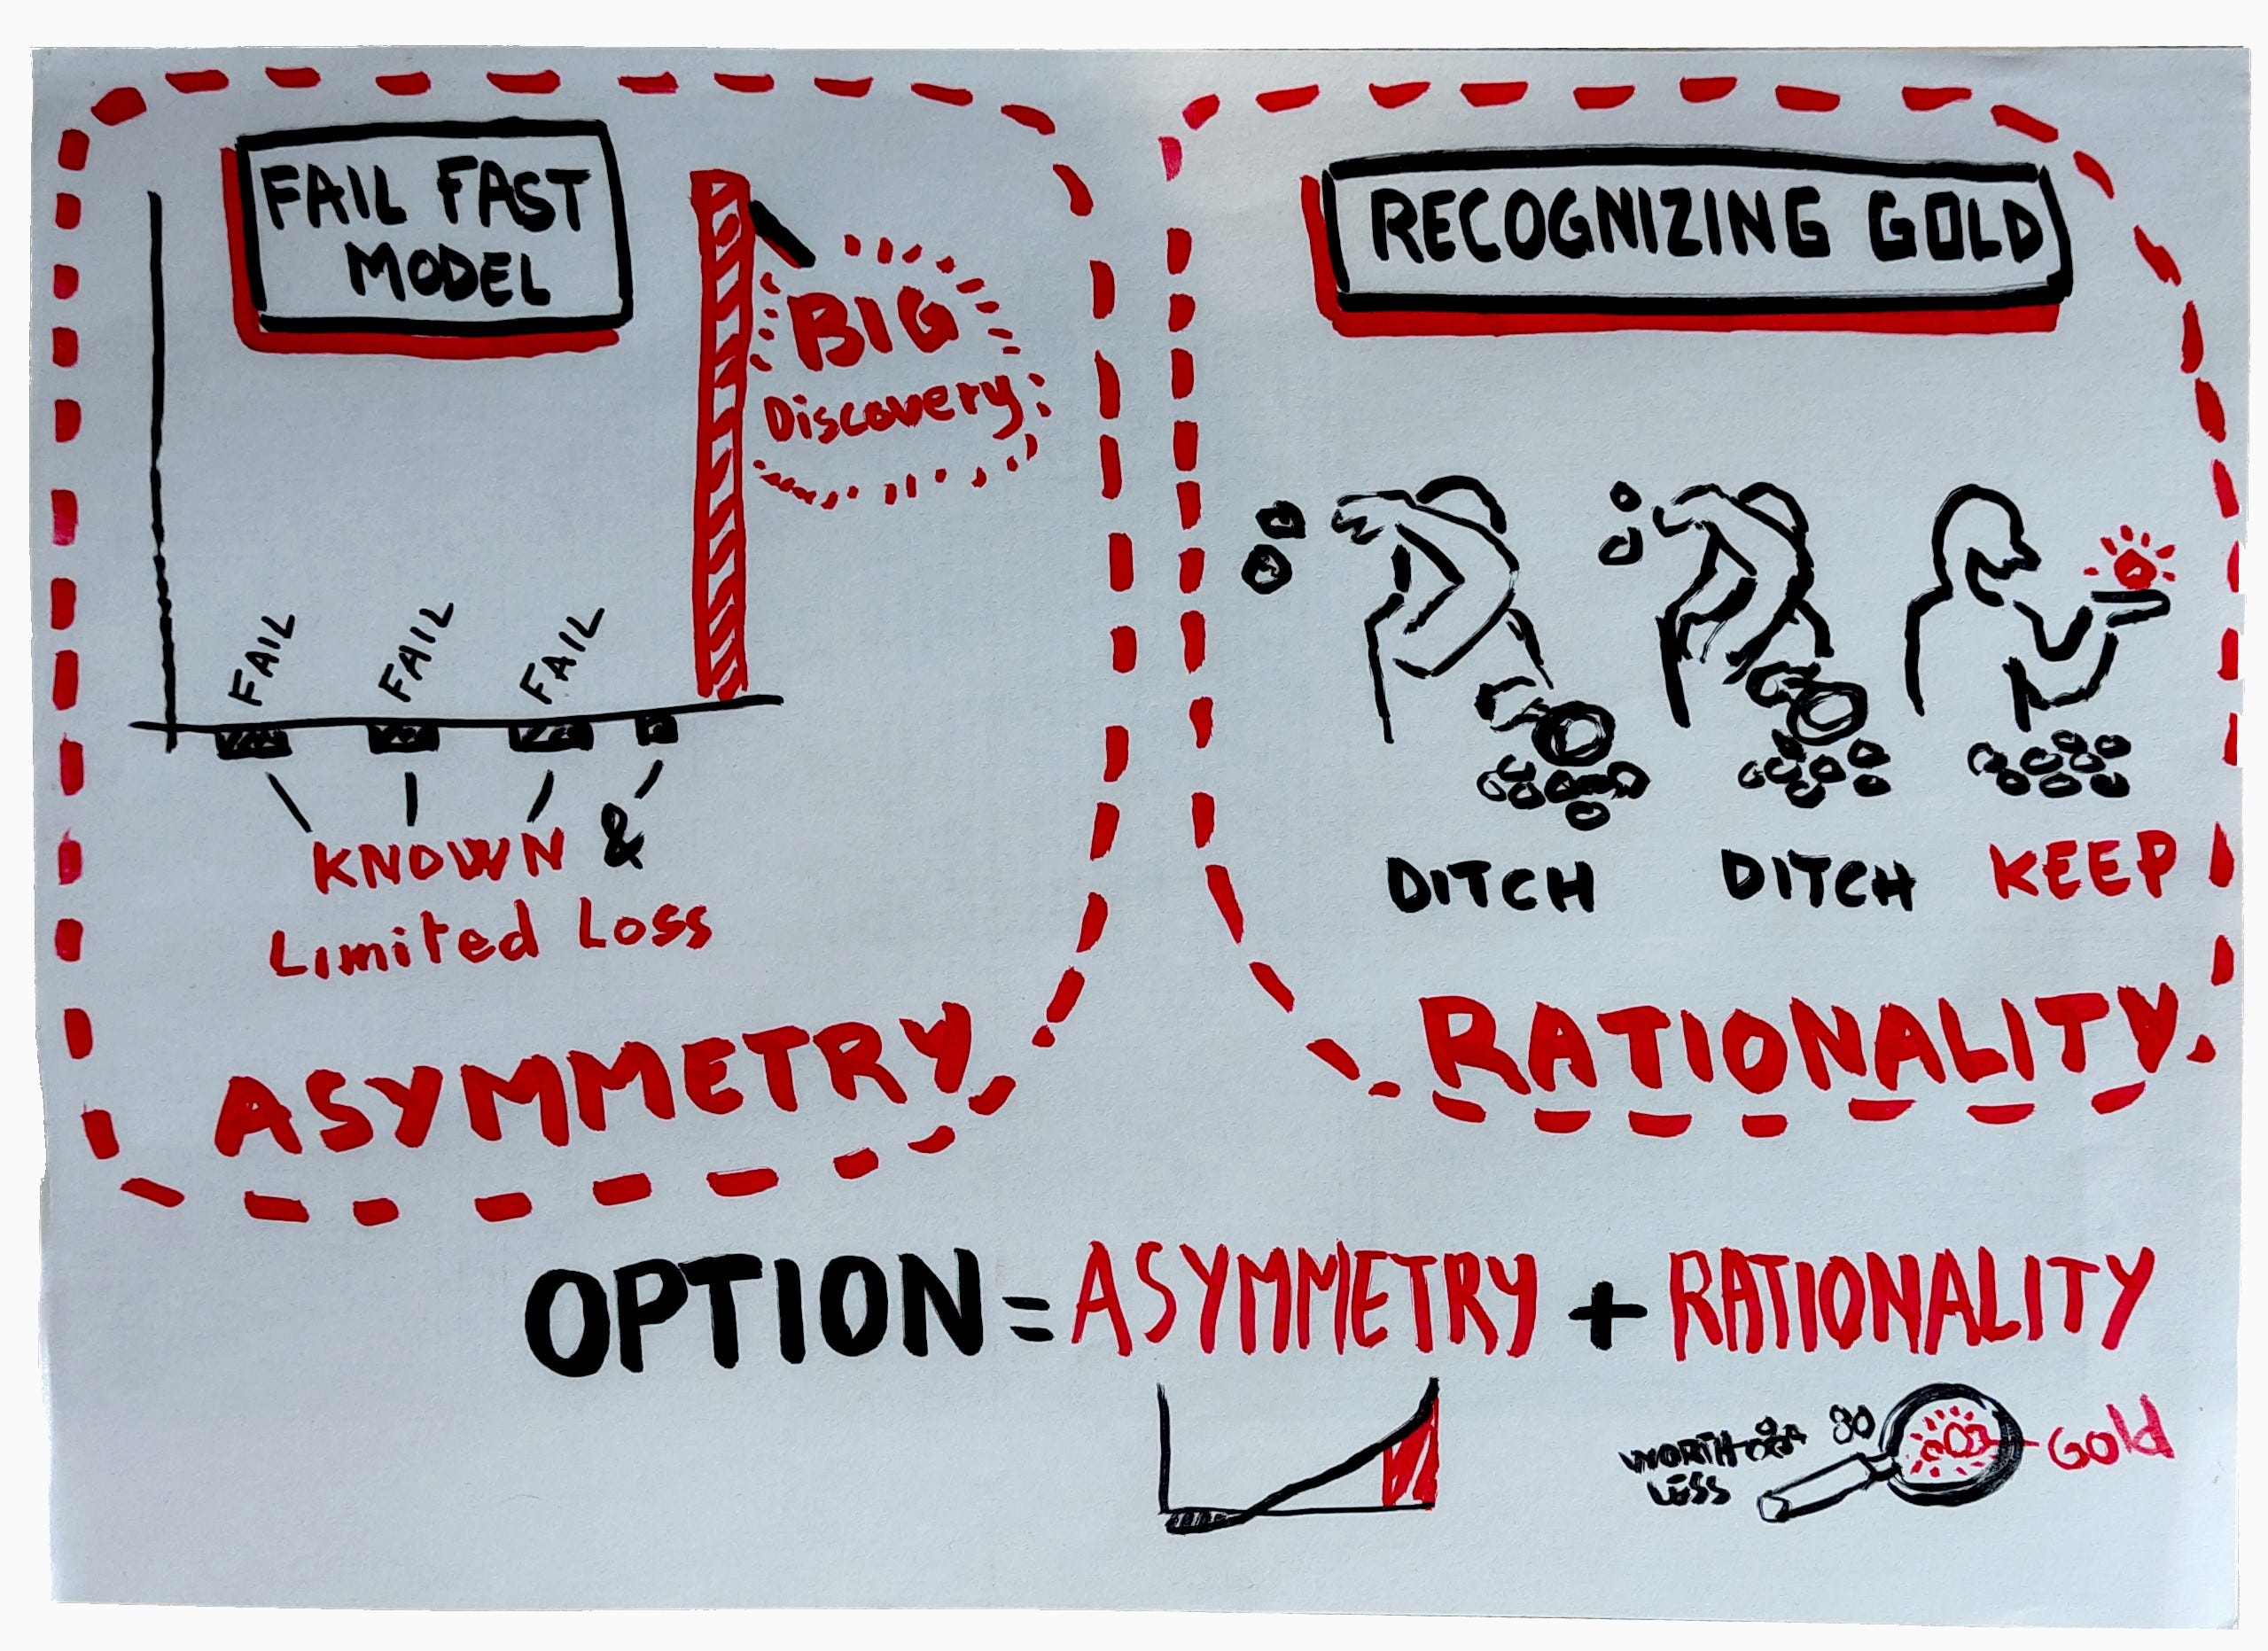 FAIL FAST
MODEL
BIG
Discovery
FAIL
FAIL
FAIL
KNOWN &
Limited Loss
ASYMMETRY
RECOGNIZING GOLD
DITCH
DITCH
KEEP
RATIONALITY
OPTION = ASYMMETRY + RATIONALITY
WORTH
LESS
Gold